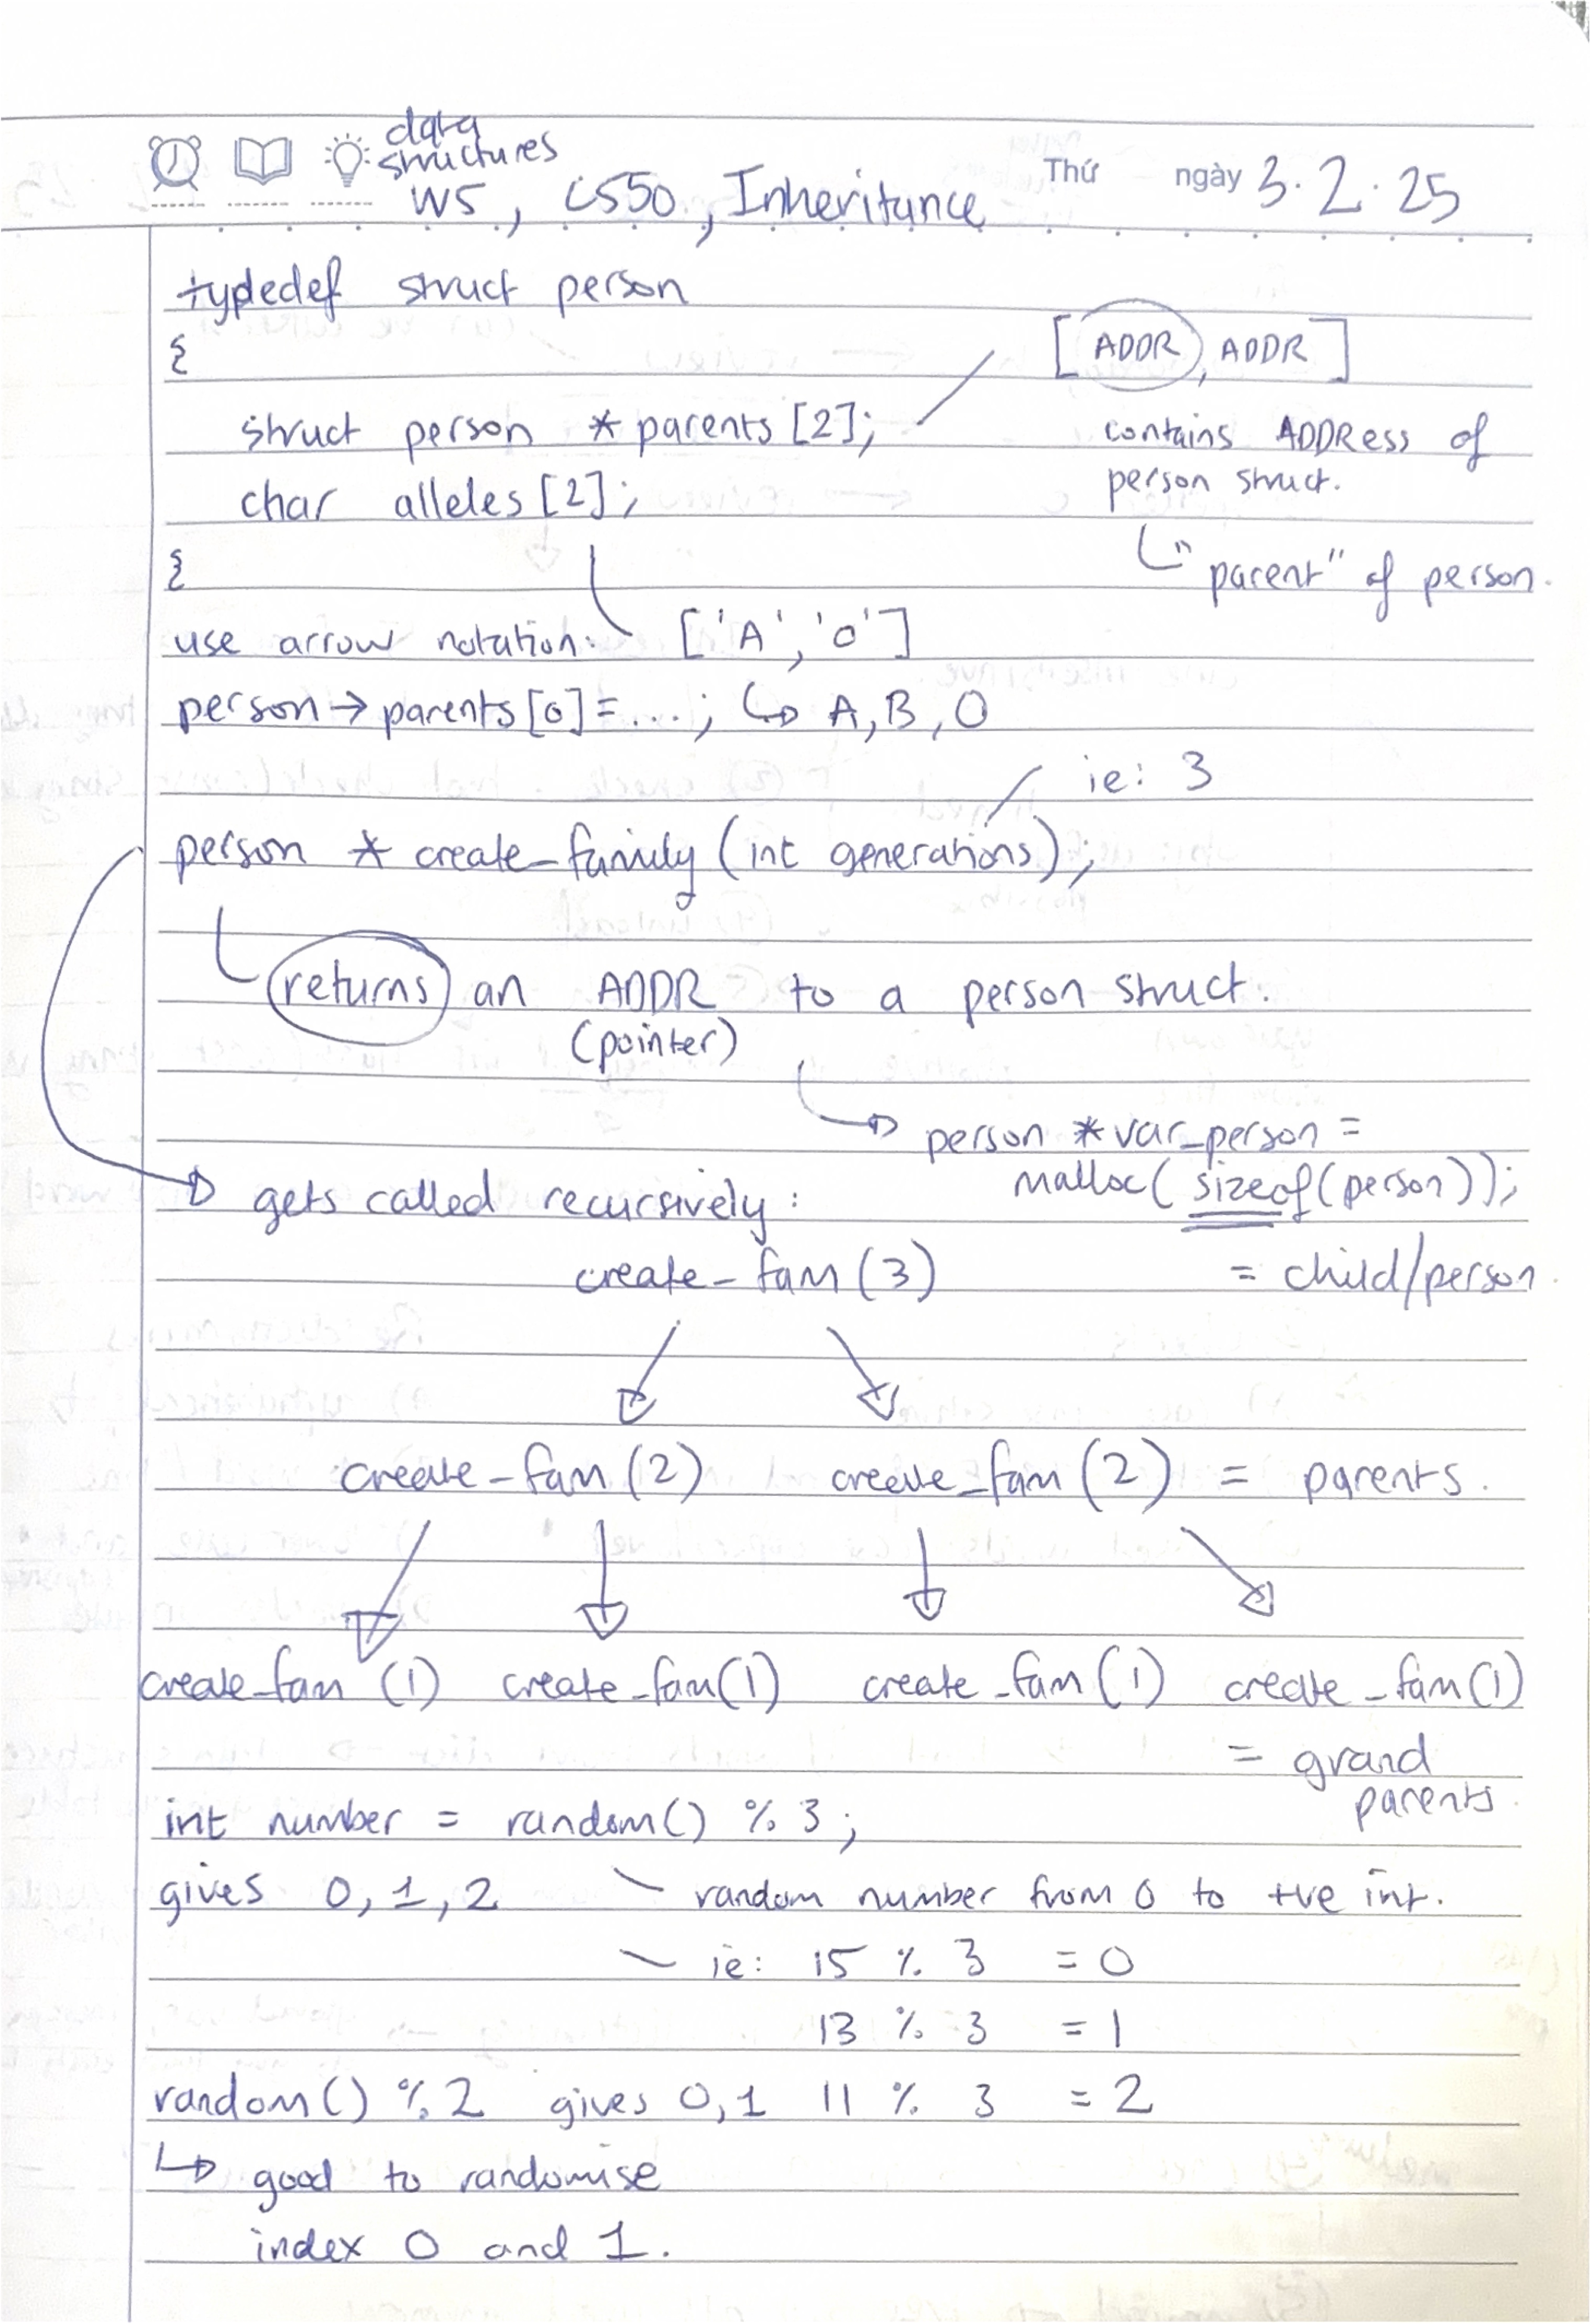 data
structures
W5, CS50, Inheritance
Thứ ngày 3.2.25
typedef struct person
{
[ADDR, ADDR]
struct person * parents [2];
contains ADDRess of
person struct.
char alleles [2];
"parent" of person.
{
use arrow notation: ['A', 'O']
person → parents [0] = ...; ↳ A, B, O
ie: 3
person * create_family (int generations);
returns an ADDR to a person struct.
(pointer)
→ person *var_person =
malloc( sizeof(person));
→ gets called recursively:
create_fam (3) = child/person
create_fam (2) create_fam (2) = parents.
create_fam (1) create_fam(1) create_fam (1) create_fam(1)
= grand
parents.
int number = random() % 3;
gives 0, 1, 2 random number from 0 to +ve int.
ie: 15 % 3 = 0
13 % 3 = 1
random() % 2 gives 0, 1 11 % 3 = 2
↳ good to randomise
index 0 and 1.